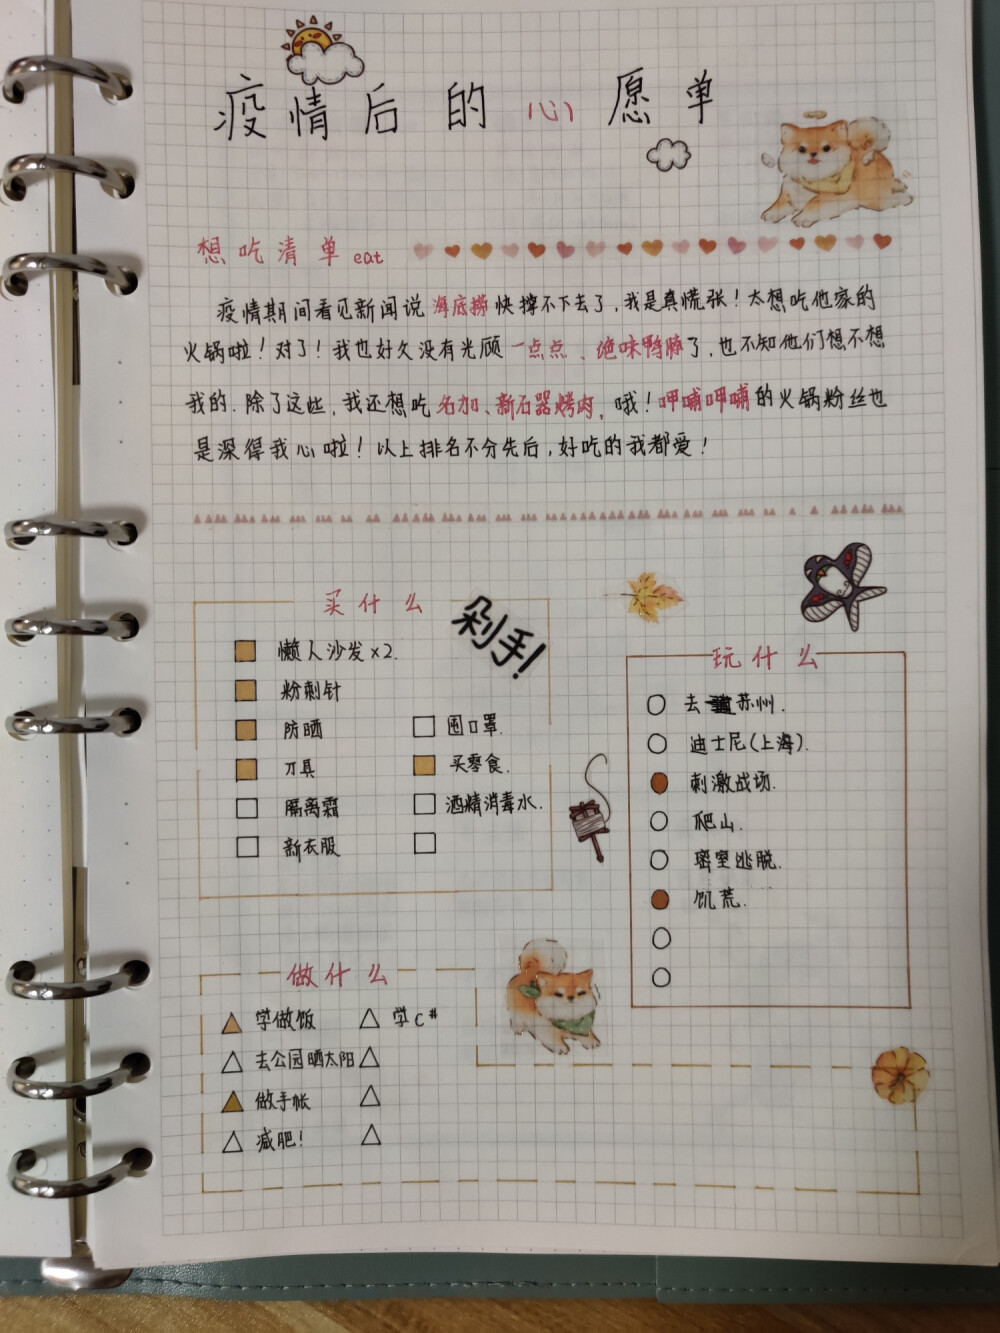 疫情后的心愿单
想吃清单 eat
疫情期间看见新闻说海底捞快撑不下去了,我是真慌张!太想吃他家的
火锅啦!对了!我也好久没有光顾一点点、绝味鸭脖了,也不知他们想不想
我的.除了这些,我还想吃名加、新石器烤肉,哦!呷哺呷哺的火锅粉丝也
是深得我心啦!以上排名不分先后,好吃的我都爱!
买什么
剁手!
懒人沙发×2.
粉刺针
防晒
囤口罩.
刀具
买零食.
隔离霜
酒精消毒水.
新衣服
玩什么
去苏州.
迪士尼(上海).
刺激战场.
爬山.
密室逃脱.
饥荒.
做什么
学做饭
学C#
去公园晒太阳
做手帐
减肥!